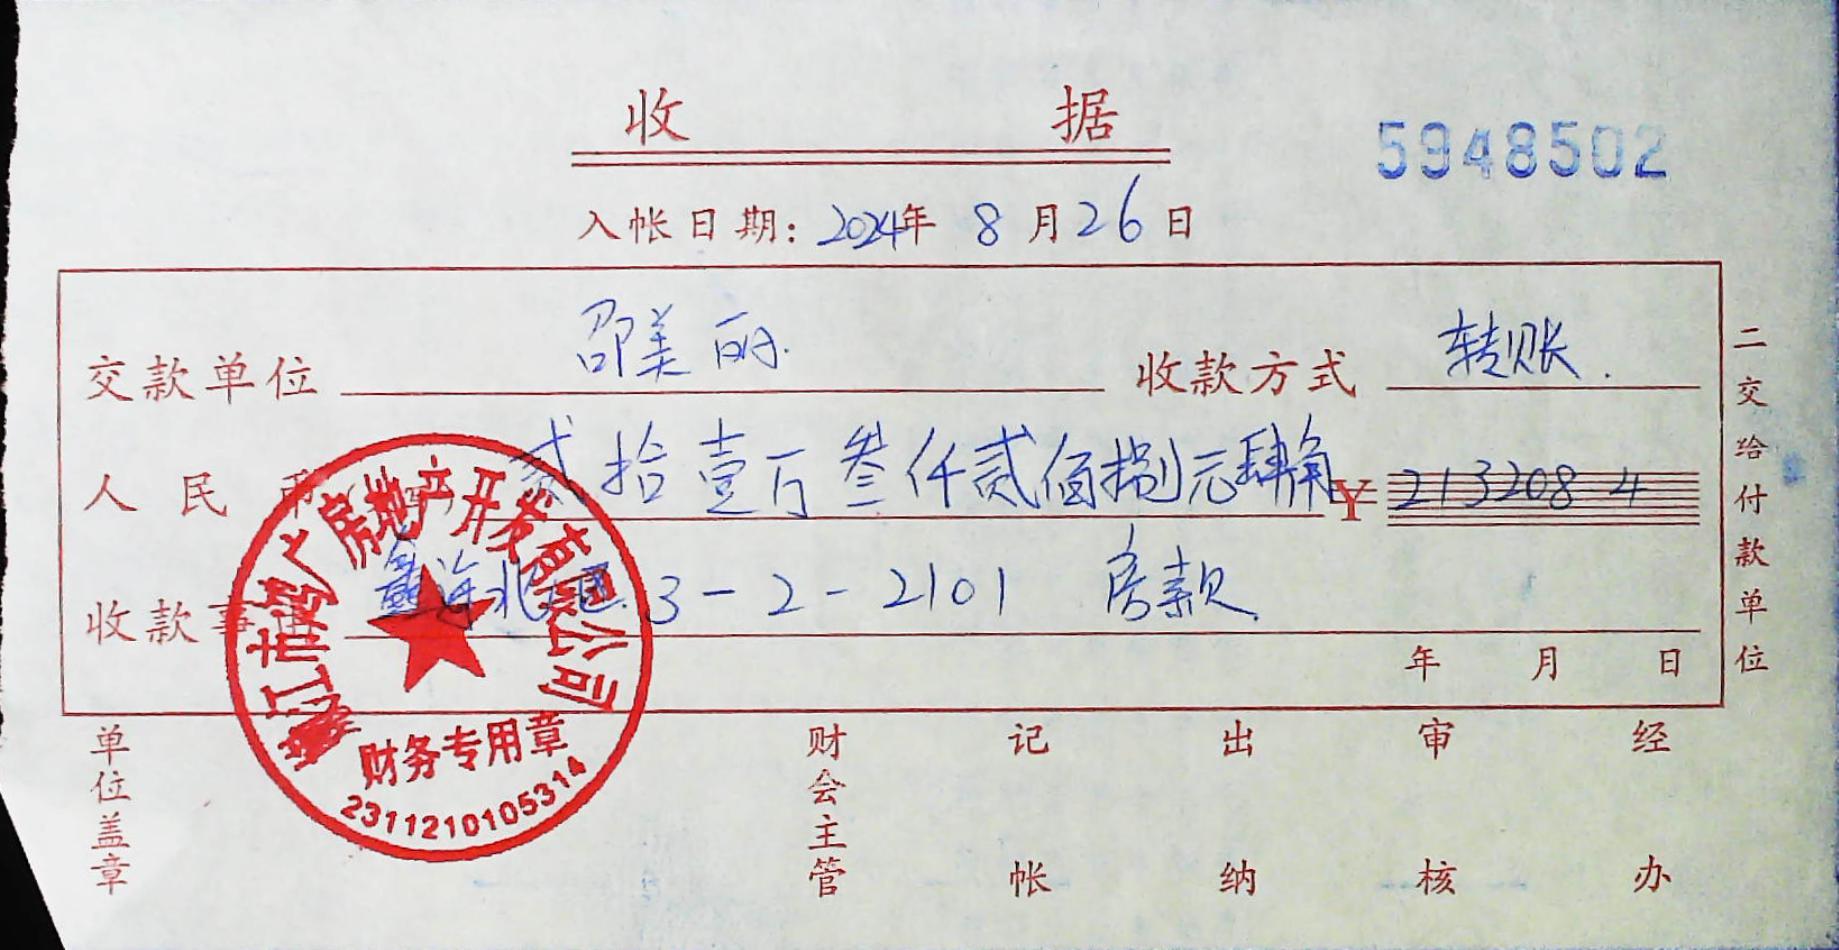 收 据
5948502
入帐日期: 2024年 8月26日
交款单位 邵美丽. 收款方式 转账.
人民币 贰拾壹万叁仟贰佰捌元肆角 ¥ 213208 4
收款事由 北区.3-2-2101 房款
年 月 日
二交给付款单位
江市鸿广房地产开发有限公司
财务专用章
2311210105314
单位盖章 财会主管 记帐 出纳 审核 经办